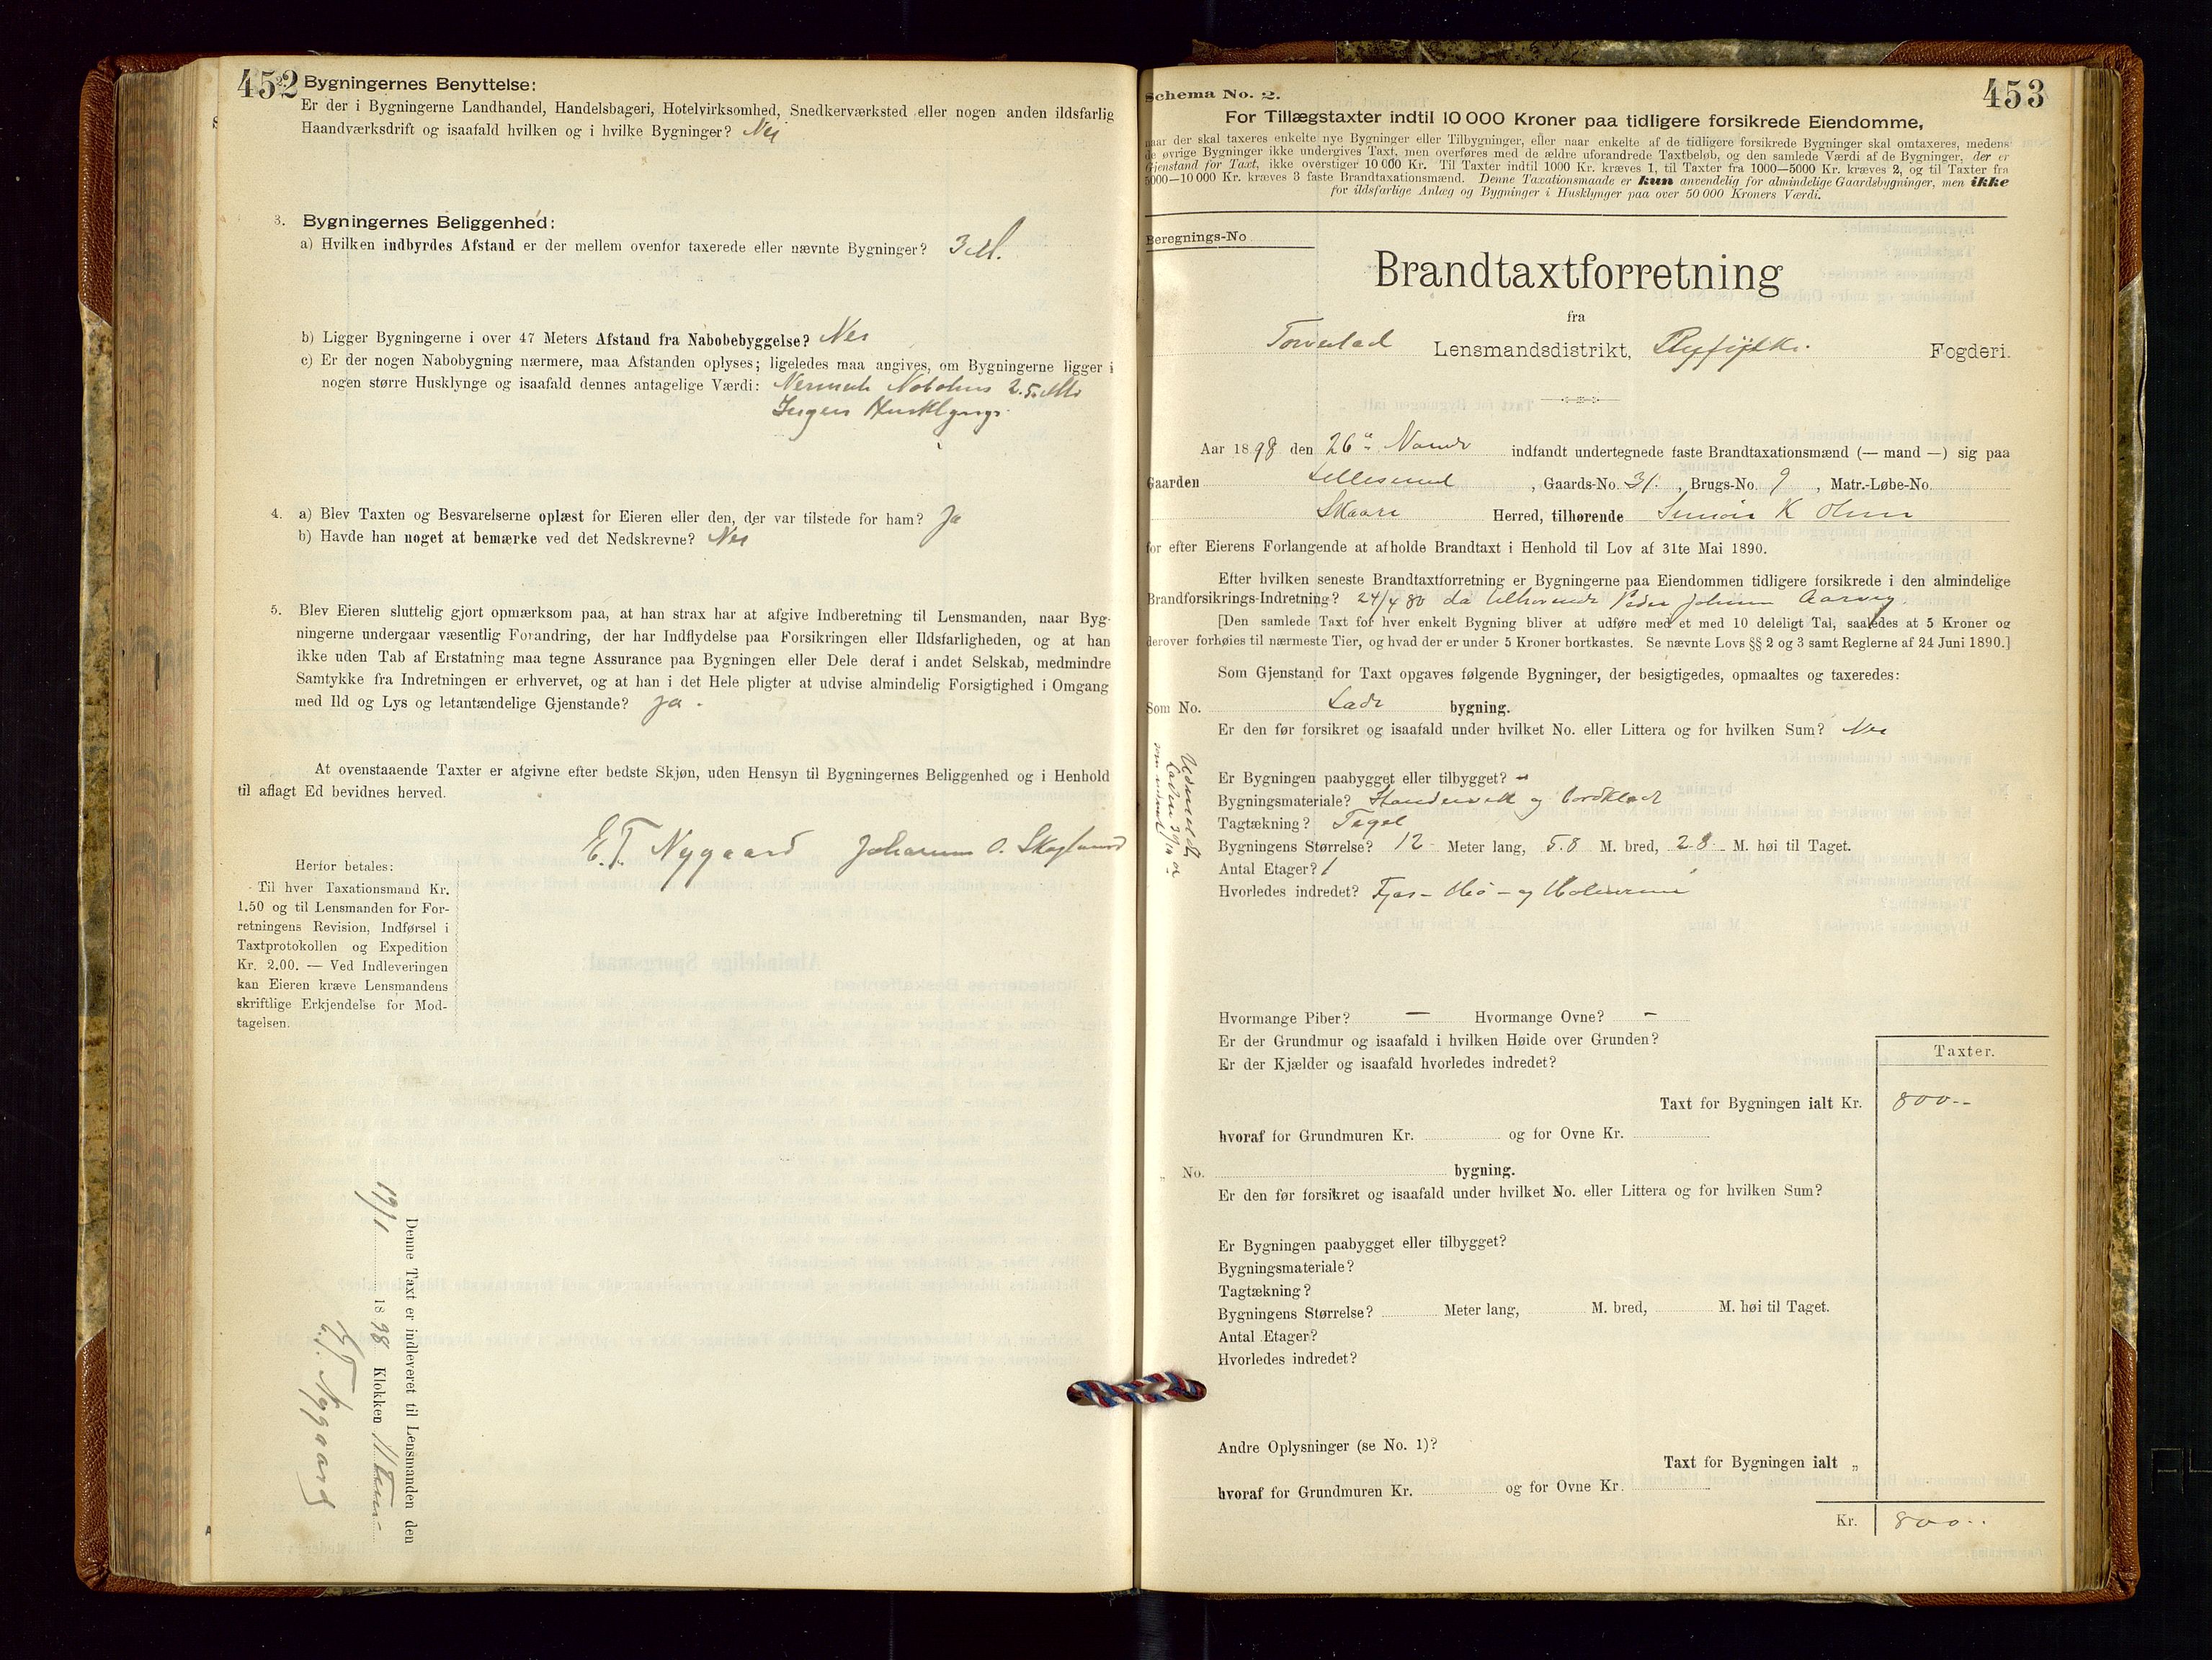 452
Bygningernes Benyttelse:
Er der i Bygningerne Landhandel, Handelsbageri, Hotelvirksomhed, Snedkerværksted eller nogen anden ildsfarlig
Haandværksdrift og isaafald hvilken og i hvilke Bygninger? Nei
3. Bygningernes Beliggenhed:
a) Hvilken indbyrdes Afstand er der mellem ovenfor taxerede eller nævnte Bygninger? 3 M.
b) Ligger Bygningerne i over 47 Meters Afstand fra Nabobebyggelse? Nei
c) Er der nogen Nabobygning nærmere, maa Afstanden oplyses; ligeledes maa angives, om Bygningerne ligger i
nogen større Husklynge og isaafald dennes antagelige Værdi: Nermeste Nabohus 2.5
Ingen Husklynge.
4. a) Blev Taxten og Besvarelserne oplæst for Eieren eller den, der var tilstede for ham? Ja
b) Havde han noget at bemærke ved det Nedskrevne? Nei
5. Blev Eieren sluttelig gjort opmærksom paa, at han strax har at afgive Indberetning til Lensmanden, naar Byg-
ningerne undergaar væsentlig Forandring, der har Indflydelse paa Forsikringen eller Ildsfarligheden, og at han
ikke uden Tab af Erstatning maa tegne Assurance paa Bygningen eller Dele deraf i andet Selskab, medmindre
Samtykke fra Indretningen er erhvervet, og at han i det Hele pligter at udvise almindelig Forsigtighed i Omgang
med Ild og Lys og letantændelige Gjenstande? Ja.
At ovenstaaende Taxter er afgivne efter bedste Skjøn, uden Hensyn til Bygningernes Beliggenhed og i Henhold
til aflagt Ed bevidnes herved.
E. T. Nygaard Johannes O. Skeglund
Herfor betales:
Til hver Taxationsmand Kr.
1.50 og til Lensmanden for For-
retningens Revision, Indførsel i
Taxtprotokollen og Expedition
Kr. 2.00. — Ved Indleveringen
kan Eieren kræve Lensmandens
skriftlige Erkjendelse for Mod-
tagelsen.
Denne Taxt er indleveret til Lensmanden den
19/1 1898 Klokken 11
E.T. Nygaard
453
Schema No. 2.
For Tillægstaxter indtil 10 000 Kroner paa tidligere forsikrede Eiendomme,
naar der skal taxeres enkelte nye Bygninger eller Tilbygninger, eller naar enkelte af de tidligere forsikrede Bygninger skal omtaxeres, medens
de øvrige Bygninger ikke undergives Taxt, men overføres med de ældre uforandrede Taxtbeløb, og den samlede Værdi af de Bygninger, der er
Gjenstand for Taxt, ikke overstiger 10 000 Kr. Til Taxter indtil 1000 Kr. kræves 1, til Taxter fra 1000—5000 Kr. kræves 2, og til Taxter fra
5000—10 000 Kr. kræves 3 faste Brandtaxationsmænd. Denne Taxationsmaade er kun anvendelig for almindelige Gaardsbygninger, men ikke
for ildsfarlige Anlæg og Bygninger i Husklynger paa over 50 000 Kroners Værdi.
Beregnings-No
Brandtaxtforretning
fra
Torvestad Lensmandsdistrikt, Ryfylke Fogderi.
Aar 1898 den 26de Novbr indfandt undertegnede faste Brandtaxationsmænd (— mand —) sig paa
Gaarden Lillesund, Gaards-No. 31, Brugs-No. 9, Matr.-Løbe-No.
Skaare Herred, tilhørende Simon K Olsen
for efter Eierens Forlangende at afholde Brandtaxt i Henhold til Lov af 31te Mai 1890.
Efter hvilken seneste Brandtaxtforretning er Bygningerne paa Eiendommen tidligere forsikrede i den almindelige
Brandforsikrings-Indretning? 24/4 80 da tilhørende Peder Johnsen Aarvig.
[Den samlede Taxt for hver enkelt Bygning bliver at udføre med et med 10 deleligt Tal, saaledes at 5 Kroner og
derover forhøies til nærmeste Tier, og hvad der er under 5 Kroner bortkastes. Se nævnte Lovs §§ 2 og 3 samt Reglerne af 24 Juni 1890.]
Som Gjenstand for Taxt opgaves følgende Bygninger, der besigtigedes, opmaaltes og taxeredes:
Som No. Lade bygning.
Er den før forsikret og isaafald under hvilket No. eller Littera og for hvilken Sum? Nei
Udmeldt
Laden 30/10
som nedrevet
Er Bygningen paabygget eller tilbygget? -
Bygningsmateriale? Standerverk og bordklædt
Tagtækning? Tegel
Bygningens Størrelse? 12 Meter lang, 5.8 M. bred, 2.8 M. høi til Taget.
Antal Etager? 1
Hvorledes indredet? Fjøs- Hø- og
Hvormange Piber? — Hvormange Ovne? -
Er der Grundmur og isaafald i hvilken Høide over Grunden?
Er der Kjælder og isaafald hvorledes indredet?
Taxter.
Taxt for Bygningen ialt Kr. 800--
hvoraf for Grundmuren Kr. og for Ovne Kr.
„ No. bygning.
Er den før forsikret og isaafald under hvilket No. eller Littera og for hvilken Sum?
Er Bygningen paabygget eller tilbygget?
Bygningsmateriale?
Tagtækning?
Bygningens Størrelse? Meter lang, M. bred, M. høi til Taget.
Antal Etager?
Hvorledes indredet?
Andre Oplysninger (se No. 1)?
Taxt for Bygningen ialt „
hvoraf for Grundmuren Kr. og for Ovne Kr.
Kr. 800--